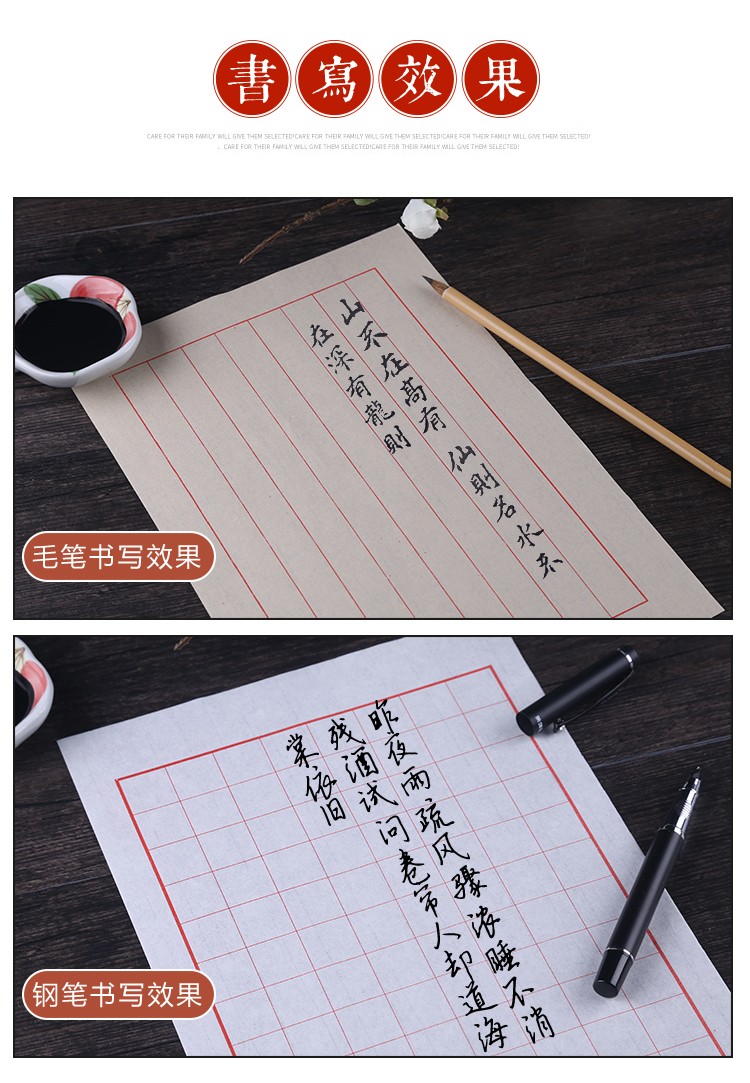 書寫效果
CARE FOR THEIR FAMILY WILL GIVE THEM SELECTED!CARE FOR THEIR FAMILY WILL GIVE THEM SELECTED!CARE FOR THEIR FAMILY WILL GIVE THEM SELECTED!
. CARE FOR THEIR FAMILY WILL GIVE THEM SELECTED!CARE FOR THEIR FAMILY WILL GIVE THEM SELECTED!
山不在高有仙則名水不
在深有龍則
毛笔书写效果
昨夜雨疏风骤浓睡不消
残酒试问卷帘人却道海
棠依旧
钢笔书写效果